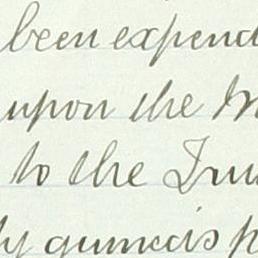 been expend
upon the
to the
guineas